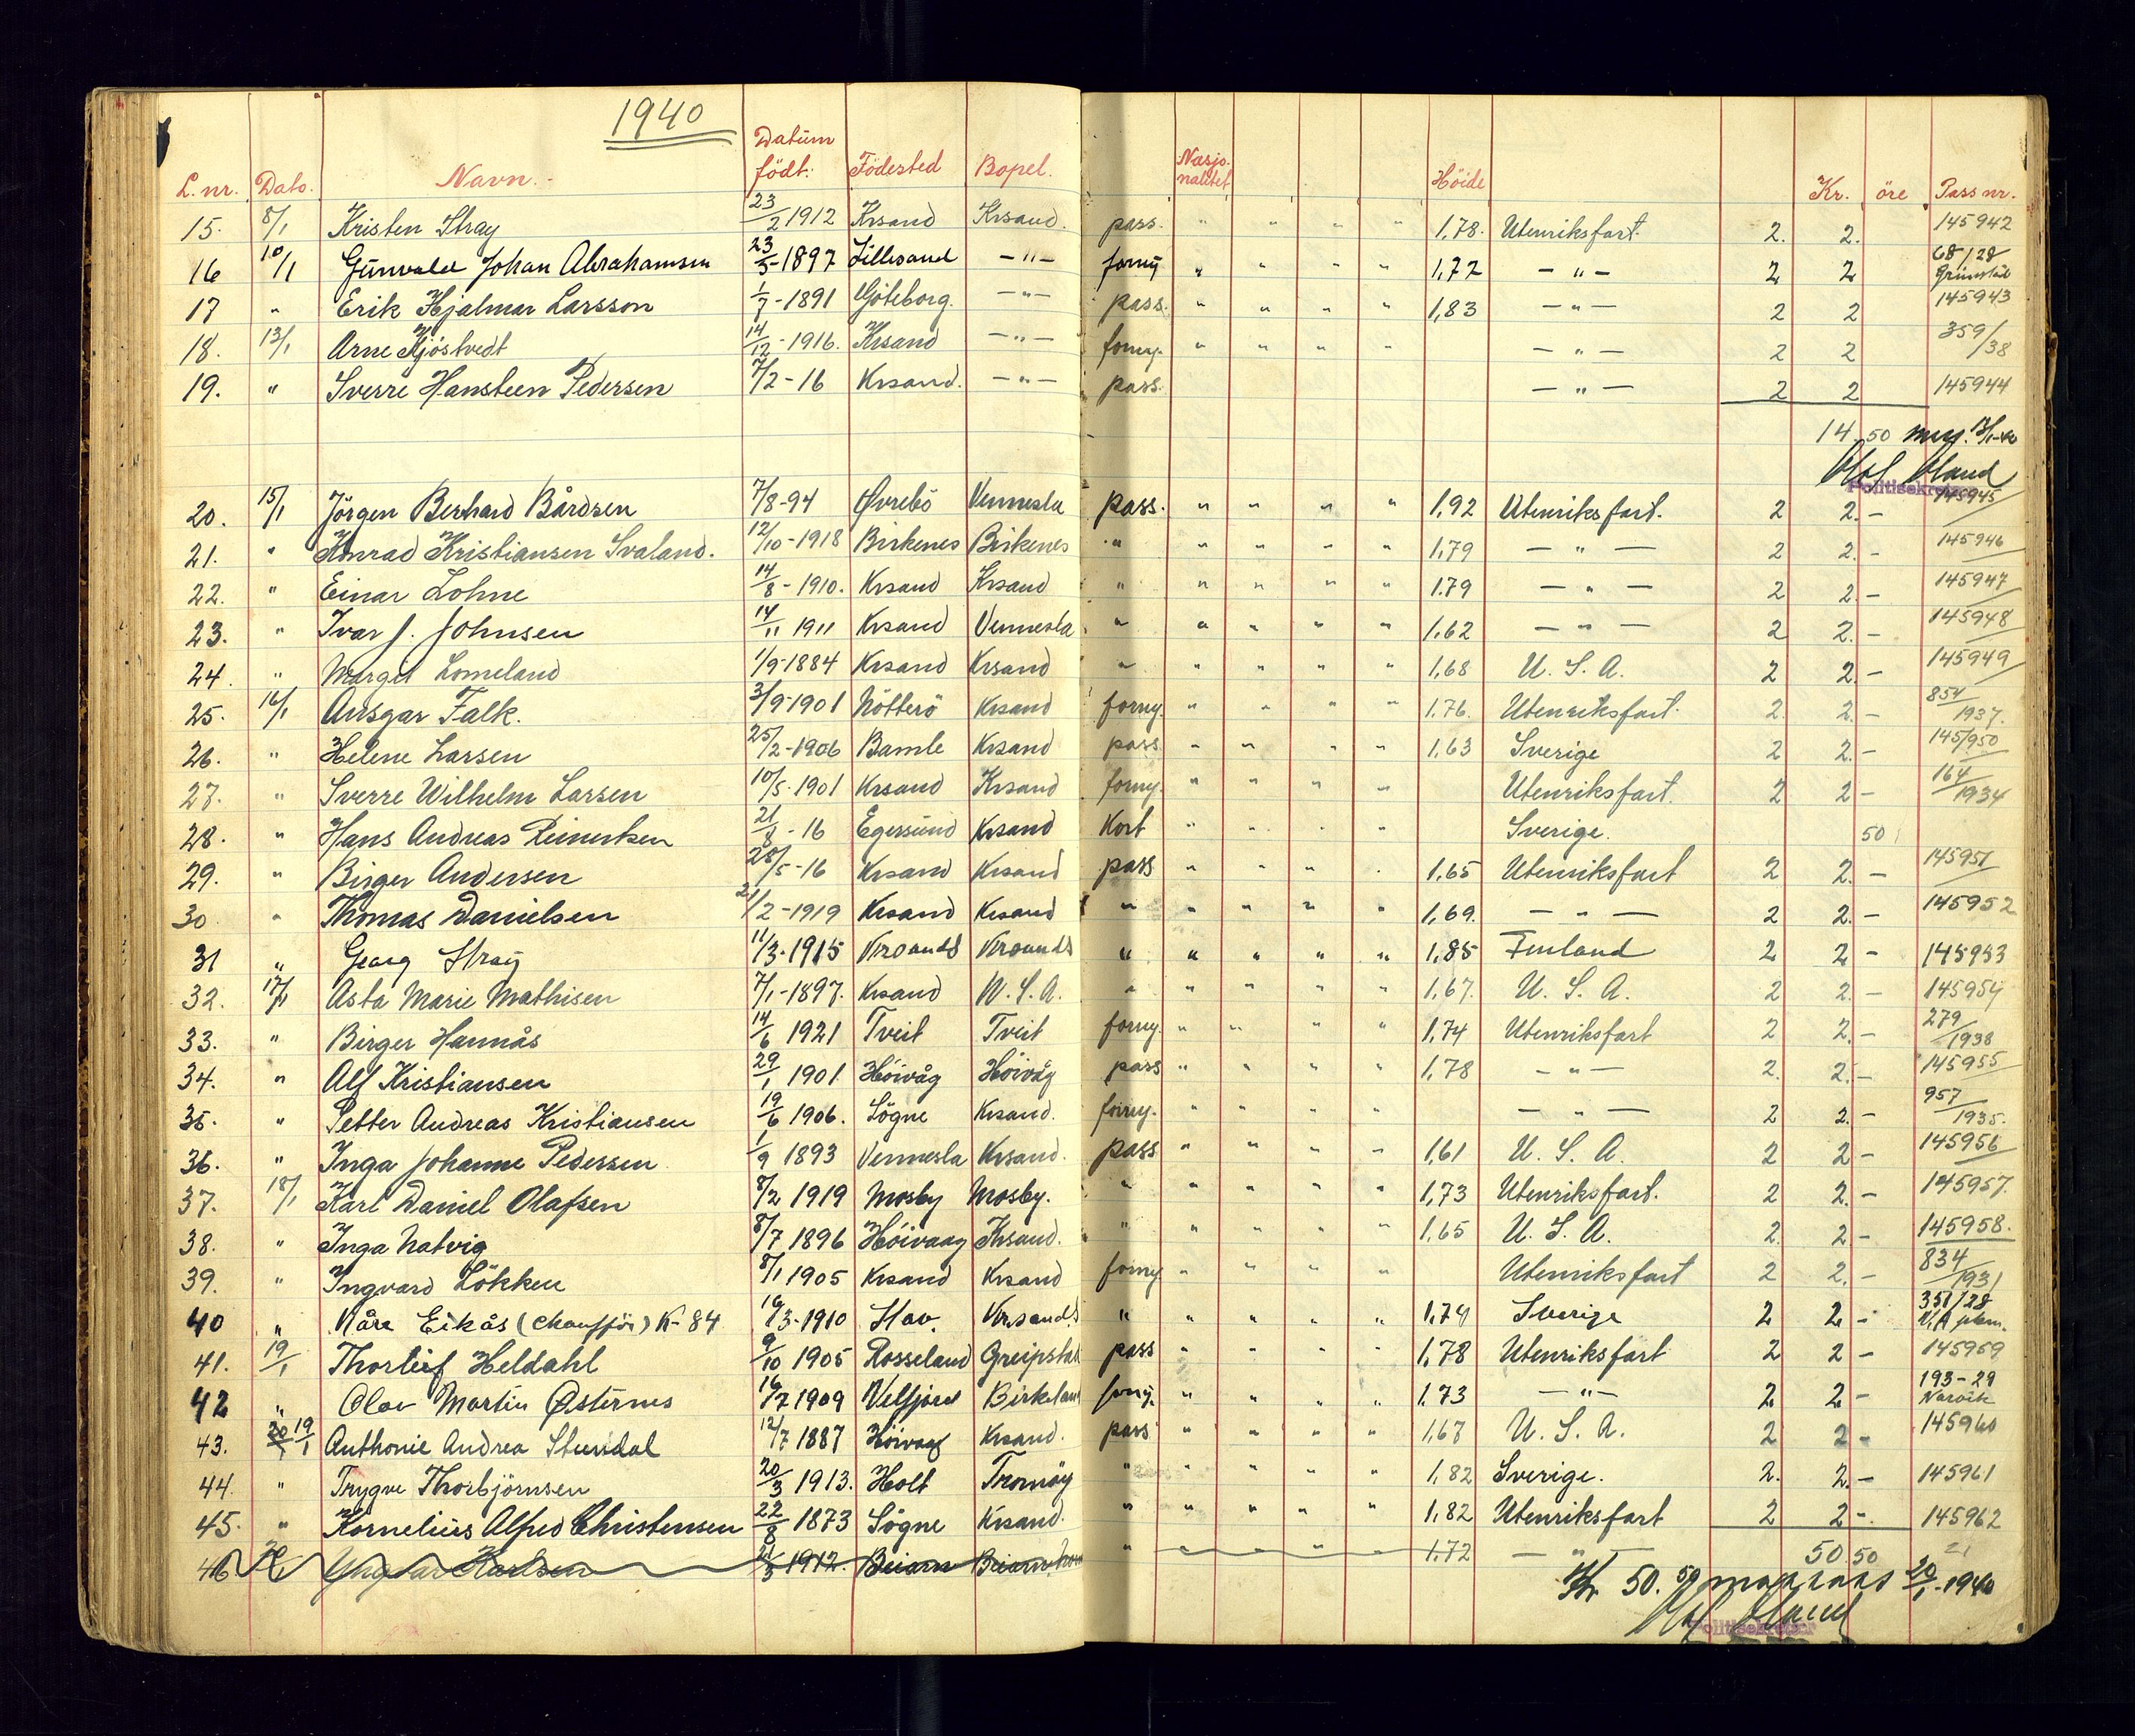 1940
L.nr. Dato. Navn. Datum født: Födested Bopel. Nasjonalitet Höide Kr. öre Pass nr.
15. 8/1 Kristen Stray 23/2 1912 Krsand Krsand. pass. " " " " 1,78. Utenriksfart. 2. 2. 145942
16 10/1 Gunvald Johan Abrahamsen 23/5-1897 Lillesand —"— forny " " " " 1,72 —"— 2 2 68/28 Grimstad
17 " Erik Hjalmar Larsson 1/7-1891 Göteborg. —"— pass. " " " " 1,83 —"— 2 2 145943
18. 13/1 Arne Kjöstvedt 14/12-1916. Krsand —"— forny. " " " " —"— 2 2 359/38
19. " Sverre Hansteen Pedersen 7/2-16 Krsand. —"— pass. —"— 2 2 145944
14.50
Olaf Aaland
Politisekretær
20. 15/1 Jörgen Berhard Bårdsen 7/8-94 Øvrebö Vennesla pass. " " " " 1,92 Utenriksfart. 2 2.- 145945
21. " Konrad Kristiansen Svaland. 12/10-1918 Birkenes Birkenes " " " " " 1,79 —"— 2 2.- 145946
22. " Einar Lohne 14/8-1910. Krsand Krsand " " " " " 1.79 —"— 2 2.- 145947
23. " Ivar J. Johnsen 14/11 1911 Krsand Vennesla " " " " " 1,62 —"— 2 2.- 145948
24. " Margit Lomeland 1/9-1884 Krsand Krsand " " " " " 1,68 U.S.A. 2 2.- 145949
25. 16/1 Ansgar Falk. 3/9-1901 Nötterö Krsand forny. " " " " 1.76. Utenriksfart. 2. 2.- 854/1937.
26. " Helene Larsen 25/2-1906 Bamle Krsand pass " " " " 1,63 Sverige 2 2.- 145950
27. " Sverre Wilhelm Larsen 10/5-1901 Krsand Krsand forny. " " " " Utenriksfart. 2 2- 164/1934
28. " Hans Andreas Reinertsen 21/8-16 Egersund Krsand Kort " " " " Sverige. 50
29. " Birger Andersen 28/5-16 Krsand Krsand pass " " " " 1,65 Utenriksfart 2 2.- 145951
30 " Thomas Danielsen 21/2-1919 Krsand Krsand " " " " " 1,69. —"— 2 2.- 145952
31 " Georg Stray 11/3-1915 Krsands Krsands " " " " " 1,85 Finland 2 2- 145953
32. 17/1 Asta Marie Mathisen 7/1-1897. Krsand U.S.A. " " " " " 1,67. U.S.A. 2 2.- 145954
33. " Birger Hannås 14/6 1921 Tveit Tveit forny. " " " " 1,74 Utenriksfart 2 2.- 279/1938
34. " Alf Kristiansen 29/1 1901. Höivåg Höivåg pass " " " " 1,78 —"— 2. 2.- 145955
35. " Petter Andreas Kristiansen 19/6 1906. Sögne Krsand. forny. " " " " —"— 2 2.- 957/1935.
36. " Inga Johanne Pedersen 1/9 1893 Vennesla Krsand. pass " " " " 1,61 U.S.A. 2 2- 145956
37. 18/1 Karl Daniel Olafsen 8/2 1919 Mosby Mosby. " " " " " 1,73 Utenriksfart. 2 2.- 145957.
38. " Inga Natvig 8/7 1896 Höivaag Krsand. " " " " " 1,65 U.S.A. 2. 2.- 145958.
39. " Ingvard Lökken 8/1 1905 Krsand Krsand forny " " " " Utenriksfart 2 2.- 834/1931
40 " Kåre Eikås (chauffør) K-84 16/3-1910 Krsands " " " " " 1,74 Sverige 2 2- 351/28
41. 19/1 Thorleif Heldahl 9/10 1905 Rosseland Greipstad pass " " " " 1,78 Utenriksfart 2 2- 145959
42 " Olav Martin Østernes 16/7 1909 Velfjord Birkeland forny. " " " " 1.73 —"— 2 2- 193-29 Narvik
43. 20 19/1 Anthonie Andrea Stuesdal 12/7 1887 Höivaag Krsand. pass " " " " 1,67 U.S.A. 2 2- 145960
44. " Trygve Thorbjörnsen 20/3 1913. Holt Tromöy " " " " " 1,82 Sverige. 2. 2.- 145961
45. " Kornelius Alfred Christensen 22/8 1873 Sögne Krsand. " " " " " 1,82 Utenriksfart 2 2-. 145962
46 Yngvar Karlsen 21/3 1912. Beiarn Beiarn " 1.72 —"— 50.50
Kr 50.50 mottatt 20/1-1940
Olaf Aaland
Politisekretær